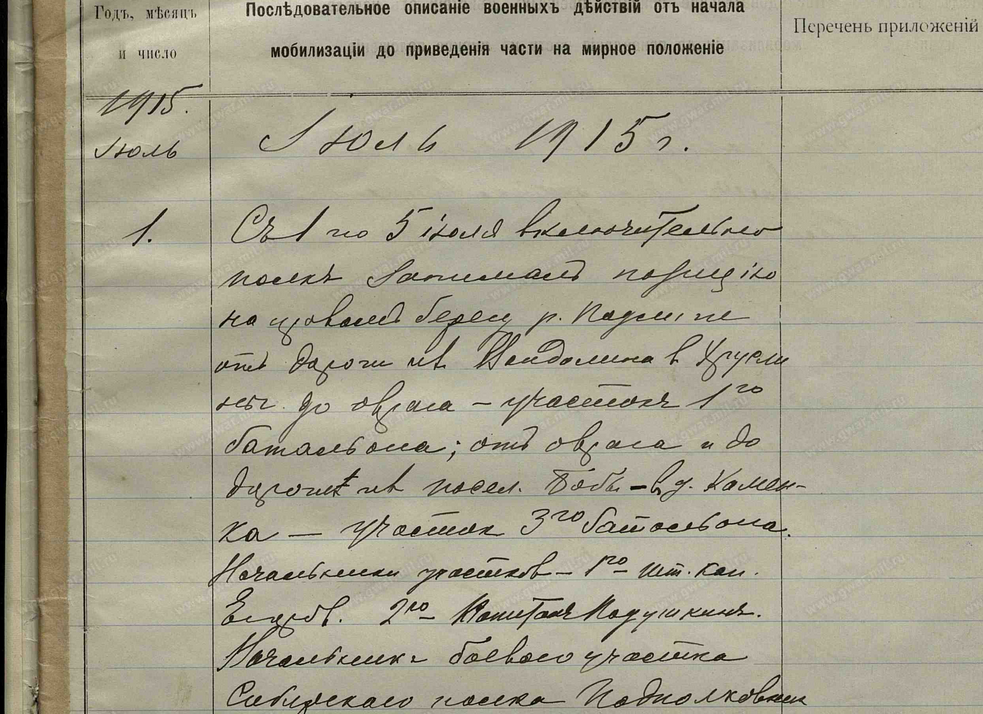 Годъ, мѣсяцъ
и число
Послѣдовательное описаніе военныхъ дѣйствій отъ начала
мобилизаціи до приведенія части на мирное положеніе
Перечень приложеній
1915.
Іюль
Іюль 1915 г.
1.
Съ 1 по 5 іюля включительно
полкъ занималъ позицію
на правомъ берегу р.
отъ дороги в
до оврага – участокъ 1го
баталіона; отъ оврага и до
дороги посел. – в д. Камен-
ка — участок 3го баталіона.
Начальники участковъ – 1го шт. кап.
2го – Капитанъ Подушкинъ.
Начальникъ боевого участка
Сибирскаго полка Подполковник